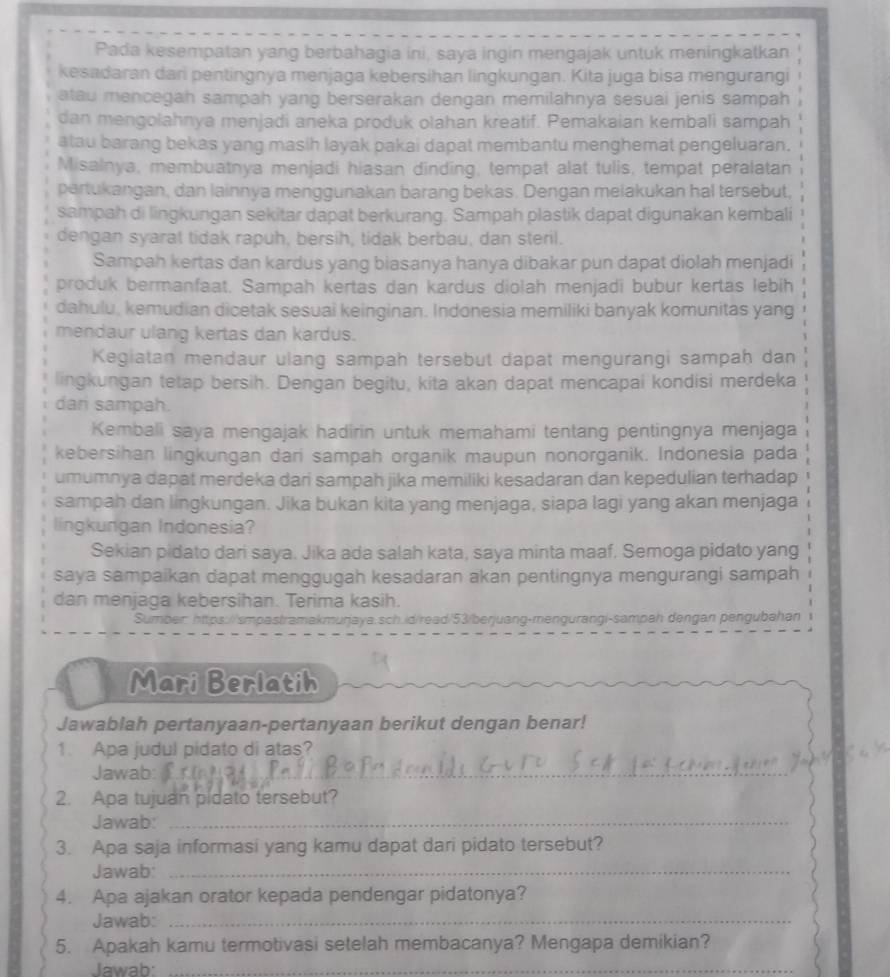 Pada kesempatan yang berbahagia ini, saya ingin mengajak untuk meningkatkan
kesadaran dari pentingnya menjaga kebersihan lingkungan. Kita juga bisa mengurangi
atau mencegah sampah yang berserakan dengan memilahnya sesuai jenis sampah
dan mengolahnya menjadi aneka produk olahan kreatif. Pemakaian kembali sampah
atau barang bekas yang masih layak pakai dapat membantu menghemat pengeluaran.
Misalnya, membuatnya menjadi hiasan dinding, tempat alat tulis, tempat peralatan
pertukangan, dan lainnya menggunakan barang bekas. Dengan melakukan hal tersebut,
sampah di lingkungan sekitar dapat berkurang. Sampah plastik dapat digunakan kembali
dengan syarat tidak rapuh, bersih, tidak berbau, dan steril.
Sampah kertas dan kardus yang biasanya hanya dibakar pun dapat diolah menjadi
produk bermanfaat. Sampah kertas dan kardus diolah menjadi bubur kertas lebih
dahulu, kemudian dicetak sesuai keinginan. Indonesia memiliki banyak komunitas yang
mendaur ulang kertas dan kardus.
Kegiatan mendaur ulang sampah tersebut dapat mengurangi sampah dan
lingkungan tetap bersih. Dengan begitu, kita akan dapat mencapai kondisi merdeka
dari sampah.
Kembali saya mengajak hadirin untuk memahami tentang pentingnya menjaga
kebersihan lingkungan dari sampah organik maupun nonorganik. Indonesia pada
umumnya dapat merdeka dari sampah jika memiliki kesadaran dan kepedulian terhadap
sampah dan lingkungan. Jika bukan kita yang menjaga, siapa lagi yang akan menjaga
lingkungan Indonesia?
Sekian pidato dari saya. Jika ada salah kata, saya minta maaf. Semoga pidato yang
saya sampaikan dapat menggugah kesadaran akan pentingnya mengurangi sampah
dan menjaga kebersihan. Terima kasih.
Sumber: https://smpastramakmurjaya.sch.id/read/53/berjuang-mengurangi-sampah dengan pengubahan
Mari Berlatih
Jawablah pertanyaan-pertanyaan berikut dengan benar!
1. Apa judul pidato di atas?
Jawab: Pagi Guru
2. Apa tujuan pidato tersebut?
Jawab:
3. Apa saja informasi yang kamu dapat dari pidato tersebut?
Jawab:
4. Apa ajakan orator kepada pendengar pidatonya?
Jawab:
5. Apakah kamu termotivasi setelah membacanya? Mengapa demikian?
Jawab: